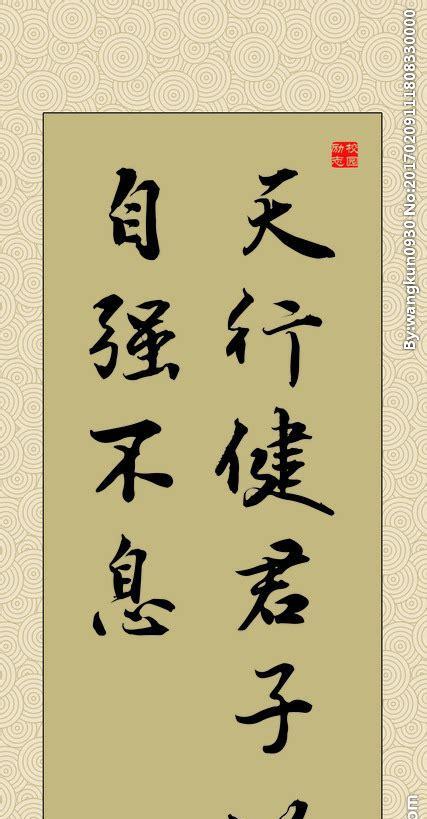 天行健君子
自强不息
校园
励志
By:wangkun0930 No:20170209111808330000
om